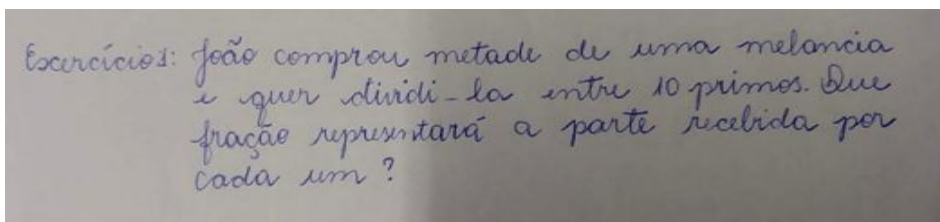 Exercício 1: João comprou metade de uma melancia
e quer dividi-la entre 10 primos. Que
fração representará a parte recebida por
cada um?